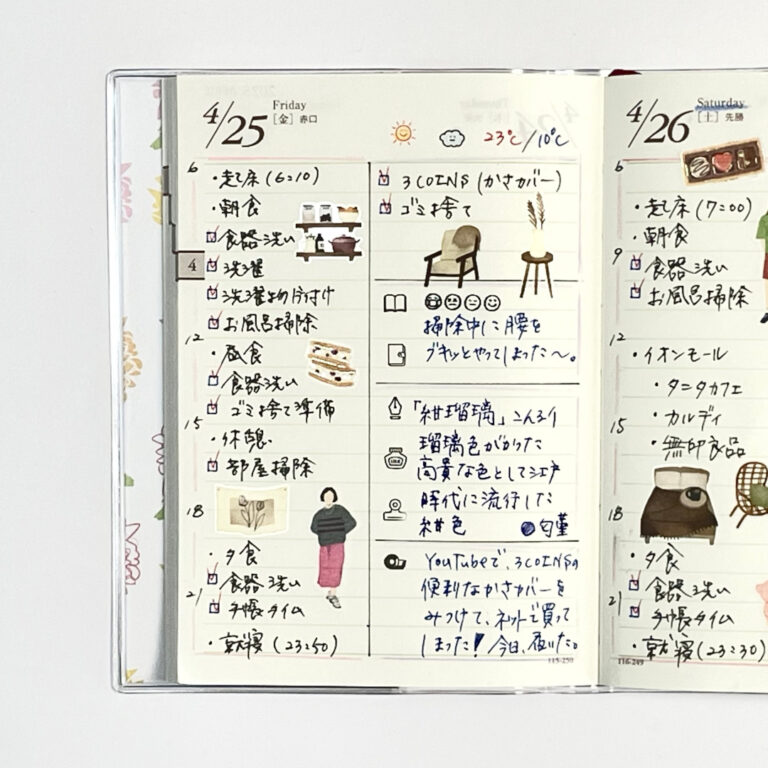 4/25 Friday [金] 赤口
23℃/10℃
6
・起床(6:10)
・朝食
食器洗い
4
洗濯
洗濯物片付け
お風呂掃除
12
・昼食
食器洗い
ゴミ捨て準備
15
・休憩
部屋掃除
18
・夕食
食器洗い
21
手帳タイム
・就寝(23:50)
3COINS(かさカバー)
ゴミ捨て
掃除中に腰を
ブキッとやってしまった〜。
「紺瑠璃」こんるり
瑠璃色がかった
高貴な色として江戸
時代に流行した
紺色 ●匂菫
YouTubeで、3COINSの
便利なかさカバーを
みつけて、ネットで買って
しまった!今日、届いた。
115-250
4/26 Saturday [土] 先勝
6
・起床(7:00)
・朝食
9
食器洗い
お風呂掃除
12
・イオンモール
・タニタカフェ
・カルディ
15
・無印良品
18
・夕食
食器洗い
21
手帳タイム
・就寝(23:30)
116-249